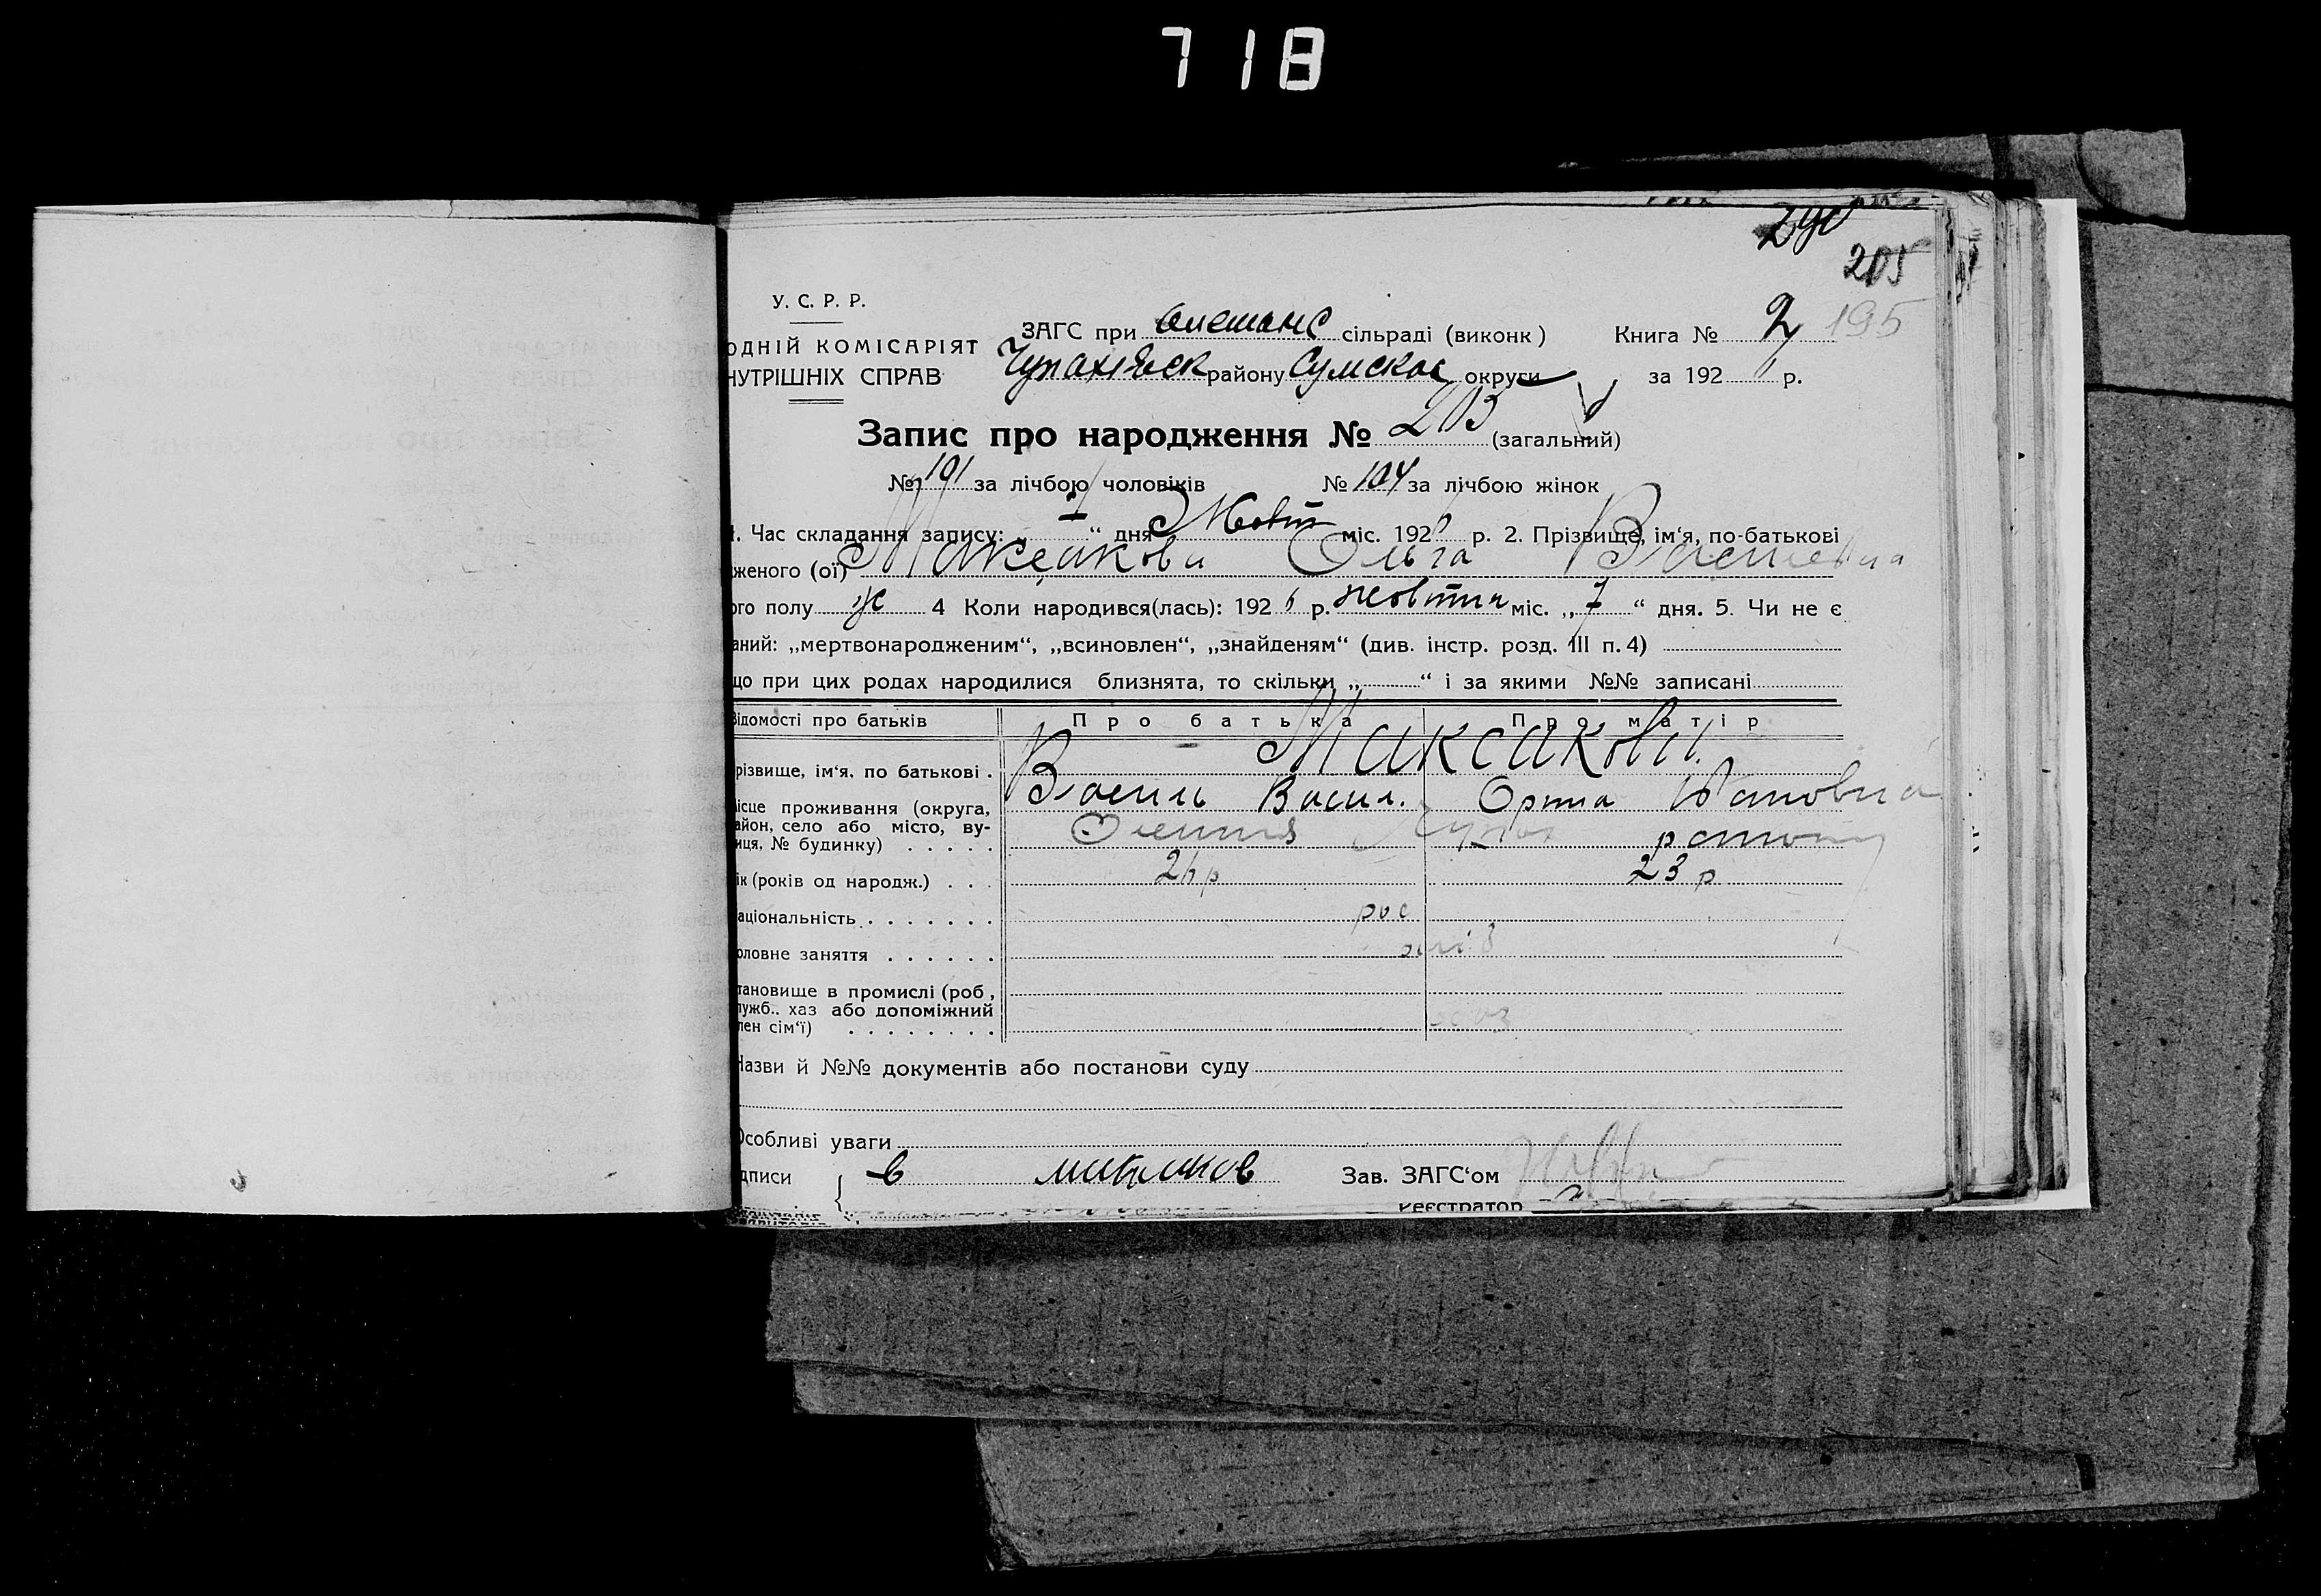 718
290
205
195
У. С. Р. Р.
ОДНІЙ КОМІСАРІЯТ
НУТРІШНІХ СПРАВ
ЗАГС при Олешанс сільраді (виконк)
району Сумской округи
Книга № 2
за 192 6 р.
Запис про народження № 205 (загальний)
№ 101 за лічбою чоловіків № 104 за лічбою жінок
1. Час складання запису: „7“ дня Жовт міс. 1926 р. 2. Прізвище, ім‘я, по-батькові
женого (ої) Максакова Ольга Васильевна
ого полу ж 4 Коли народився(лась): 1926 р. жовтня міс. „7“ дня. 5. Чи не є
аний: „мертвонародженим“, „всиновлен“, „знайденям“ (див. інстр. розд. III п. 4)
що при цих родах народилися близнята, то скільки „ “ і за якими №№ записані
Відомості про батьків Про батька Про матір
різвище, ім‘я, по батькові . Максакови.
Василь Васил.
ісце проживання (округа,
айон, село або місто, ву-
иця, № будинку) . . . . .
ік (років од народж.) . . . 26 р 23 р
аціональність . . . . . . . рос
оловне заняття . . . . . . хліб
тановище в промислі (роб,
лужб., хаз або допоміжний
лен сім‘ї) . . . . . . . . хаз
Назви й №№ документів або постанови суду
Особливі уваги
дписи В Максаков Зав. ЗАГС‘ом
Реєстратор